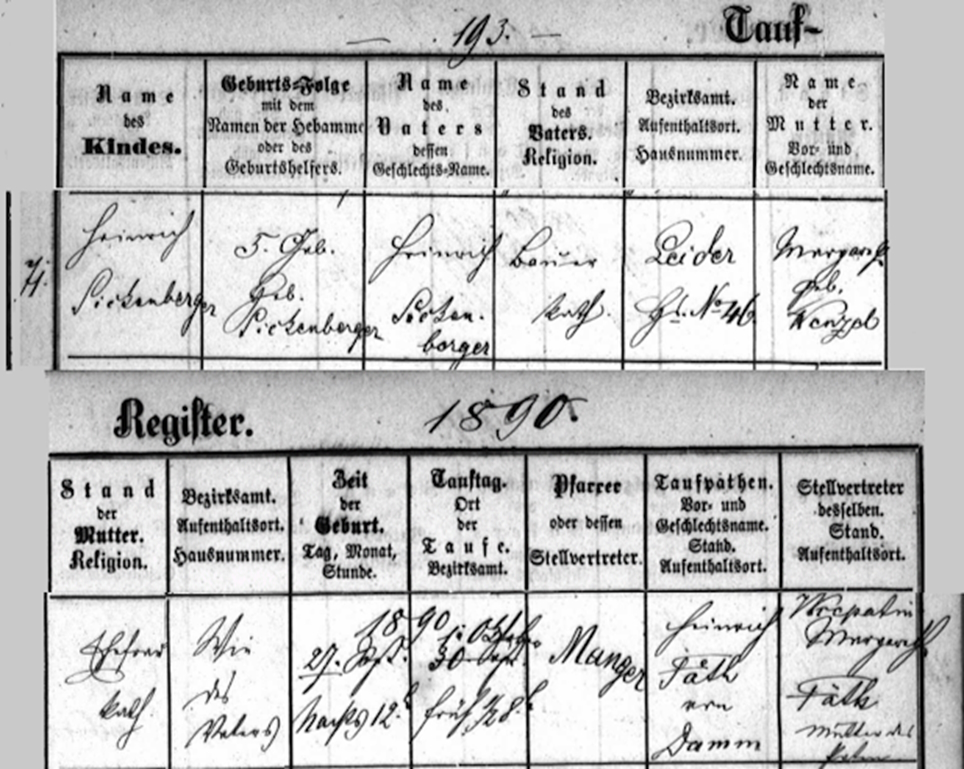 — 193. —
Tauf-
Name
des
Kindes.
Geburts-Folge
mit dem
Namen der Hebamme
oder des
Geburtshelfers.
Name
des
Vaters
dessen
Geschlechts-Name.
Stand
des
Vaters.
Religion.
Bezirksamt.
Aufenthaltsort.
Hausnummer.
Name
der
Mutter.
Vor- und
Geschlechtsname.
Heinrich
Sickenberger
5. Geb.
Geb.
Sickenberger
Heinrich
Sicken-
berger
Bauer
kath.
Leider
Hs. No 46
Margareth
geb.
Wenzel
Register.
1890.
Stand
der
Mutter.
Religion.
Bezirksamt.
Aufenthaltsort.
Hausnummer.
Zeit
der
Geburt.
Tag, Monat,
Stunde.
Tauftag.
Ort
der
Taufe.
Bezirksamt.
Pfarrer
oder dessen
Stellvertreter.
Taufpathen.
Vor- und
Geschlechtsname.
Stand.
Aufenthaltsort.
Stellvertreter
desselben.
Stand.
Aufenthaltsort.
Ehefrau
kath.
Wie
des
Vaters
1890
27. Sept.
Nachts 12
30. Sept.
früh
Manger
Heinrich
Fäth
von
Damm
Margareth
Fäth
Mutter des